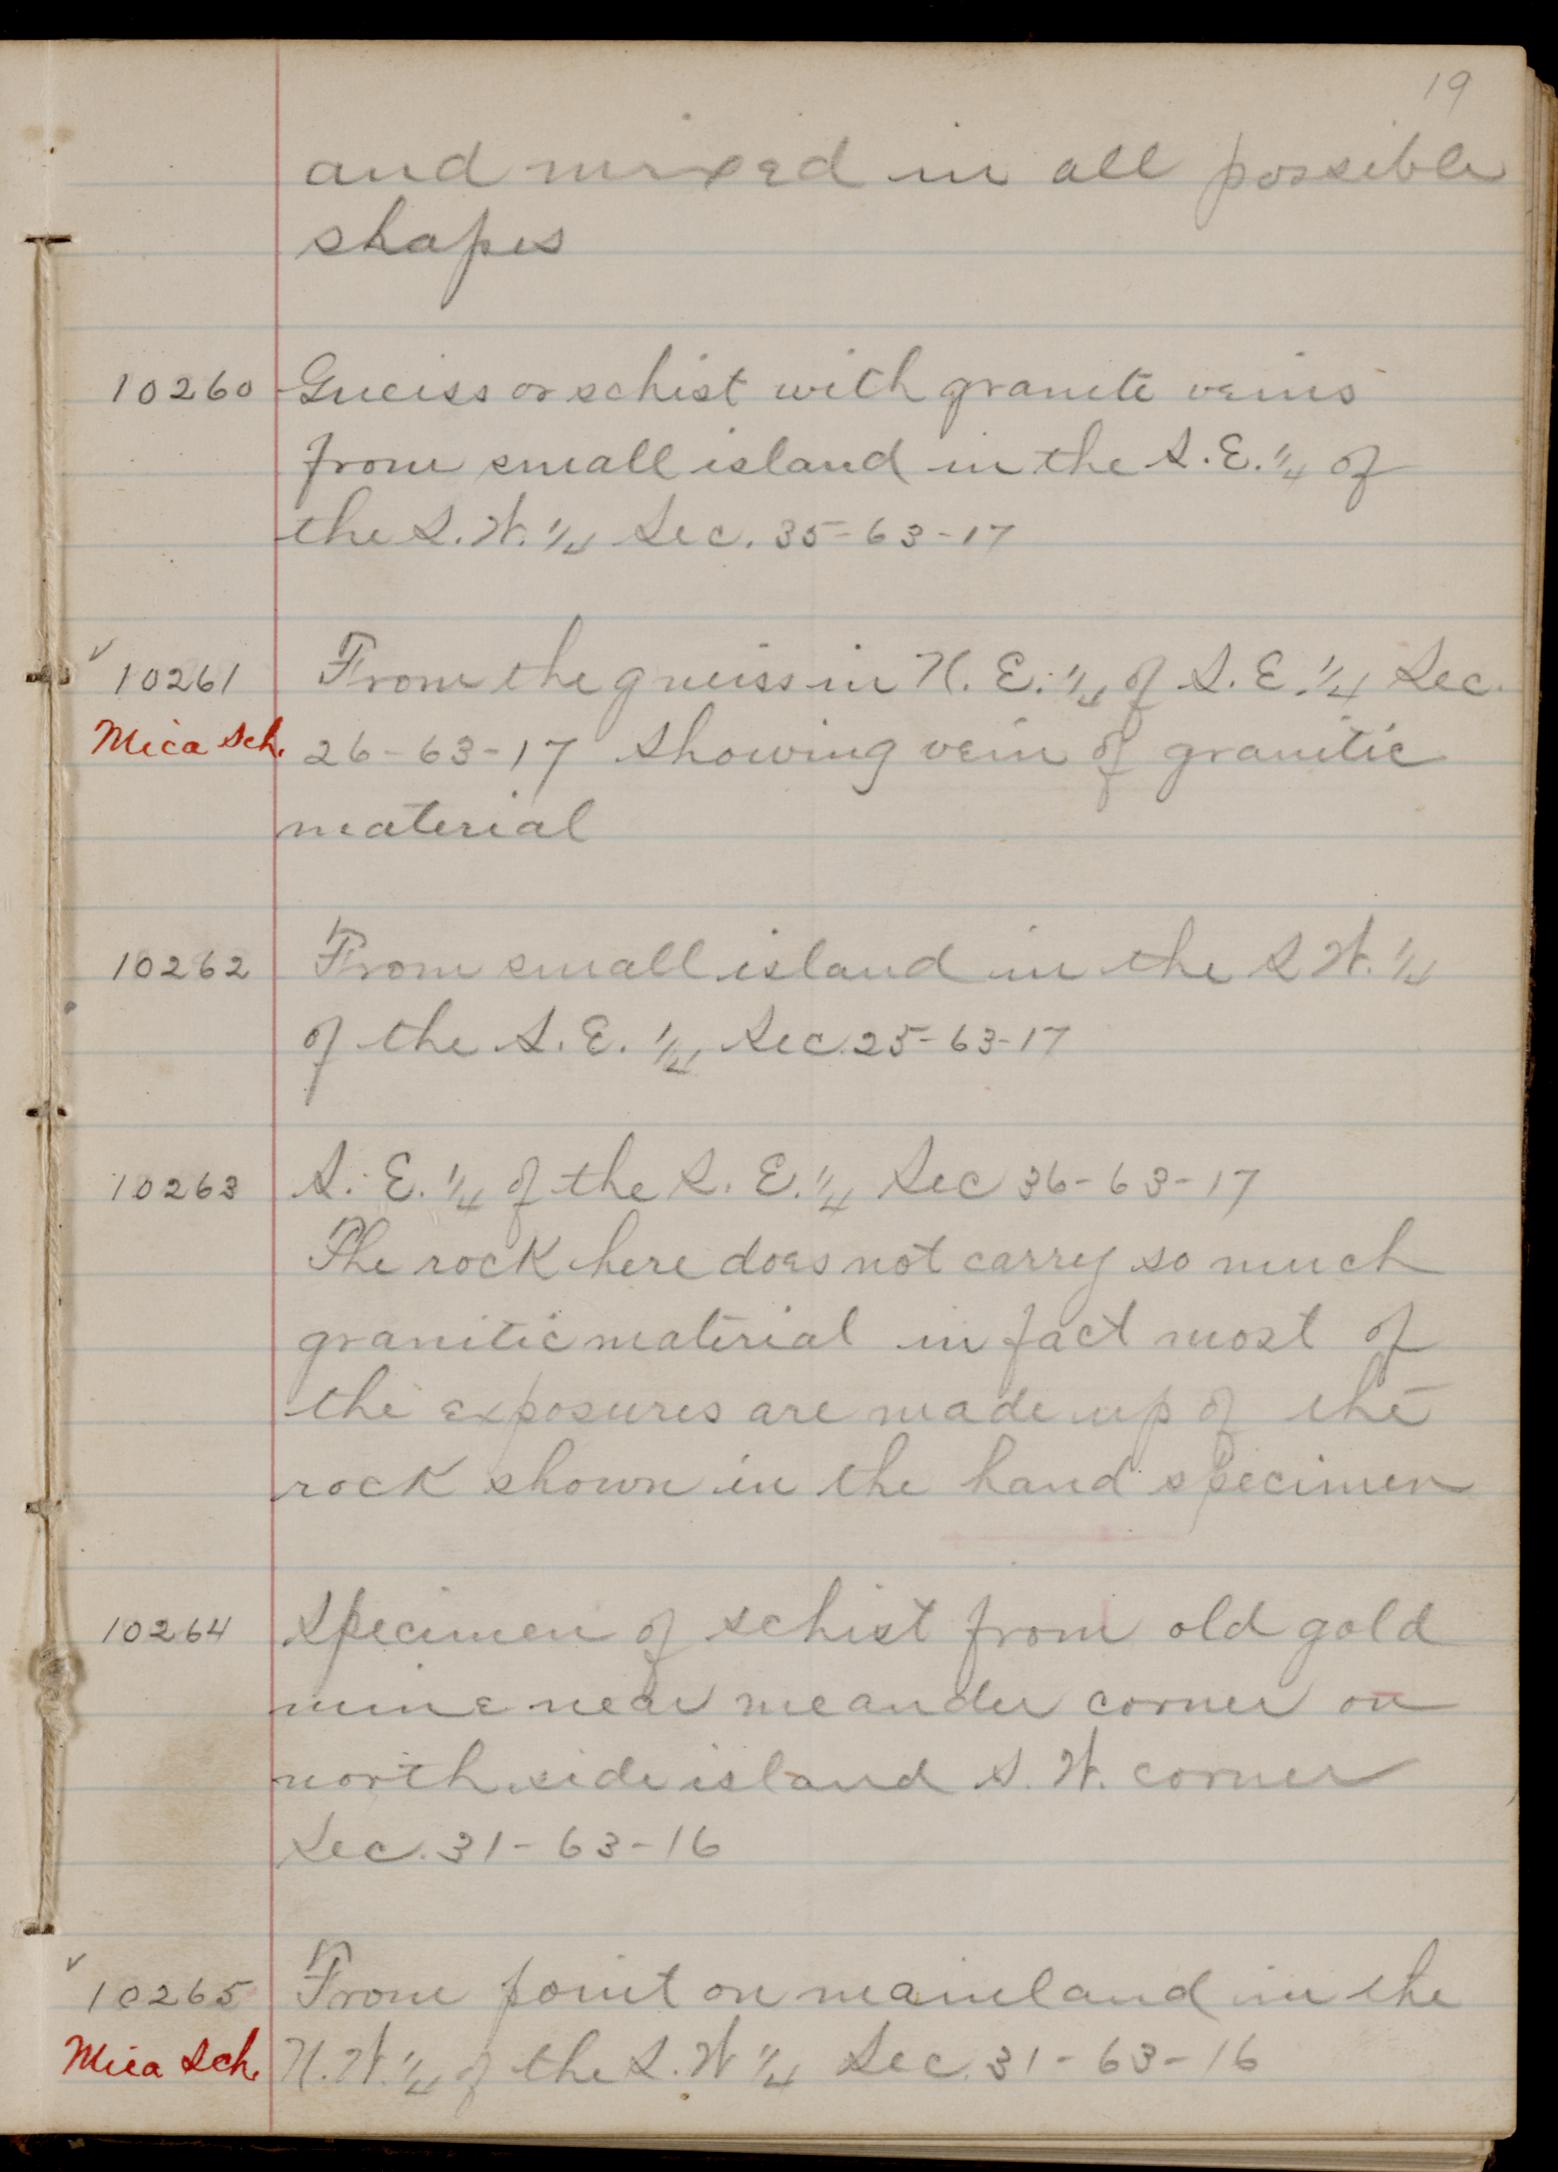 19
and mixed in all possible
shapes
10260 Gneiss or schist with granite veins
from small island in the S.E. 1/4 of
the S.W. 1/4 Sec. 35-63-17
✓ 10261 From the gneiss in N.E. 1/4 of S.E. 1/4 Sec.
Mica Sch. 26-63-17 showing vein of granitic
material
10262 From small island in the S W. 1/4
of the S.E. 1/4 Sec. 25-63-17
10263 S.E. 1/4 of the S.E. 1/4 Sec 36-63-17
The rock here does not carry so much
granitic material in fact most of
the exposures are made up of the
rock shown in the hand specimen
10264 Specimen of schist from old gold
mine near meander corner on
north side island S.W. corner
Sec. 31-63-16
✓ 10265 From point on mainland in the
Mica Sch. N.W. 1/4 of the S.W 1/4 Sec. 31-63-16